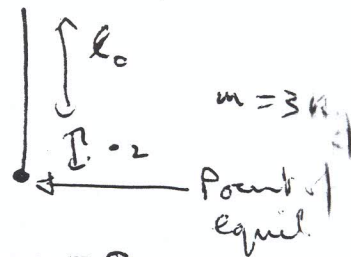 l₀
m = 3 k
·2
Point of
equil